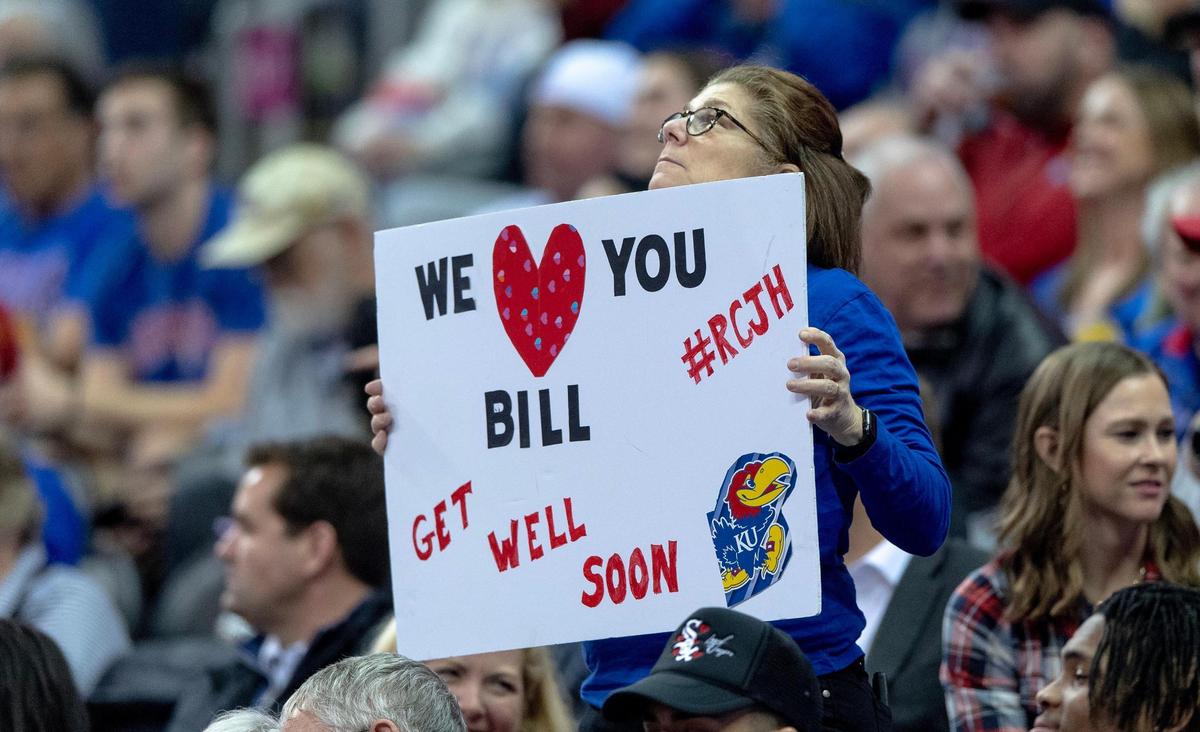 WE YOU
#RCJH
BILL
GET WELL SOON
KU
SOX